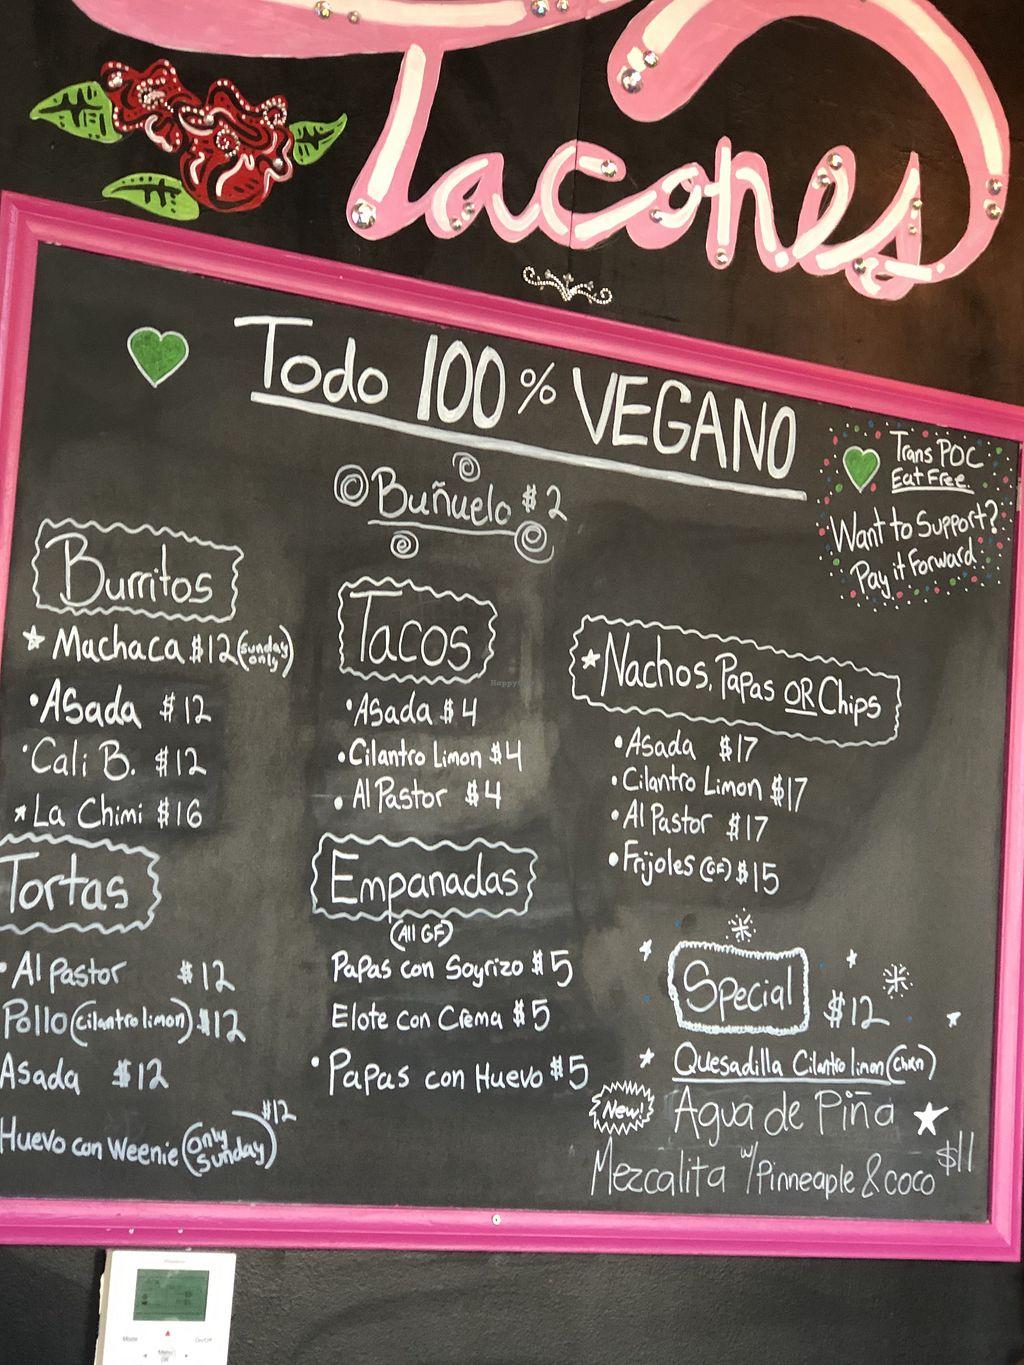 Tacones
Todo 100% VEGANO
Buñuelo $2
Trans POC
Eat Free
Want to Support?
Pay it Forward
Burritos
Machaca $12 (sunday only)
Asada $12
Cali B. $12
La Chimi $16
Tortas
Al Pastor $12
Pollo (cilantro limon) $12
Asada $12
Huevo con Weenie (only sunday) $12
Tacos
Asada $4
Cilantro Limon $4
Al Pastor $4
Empanadas
(All GF)
Papas con Soyrizo $5
Elote con Crema $5
Papas con Huevo $5
Nachos, Papas OR Chips
Asada $17
Cilantro Limon $17
Al Pastor $17
Frijoles (GF) $15
Special $12
Quesadilla Cilantro limon (chkn)
New! Agua de Piña
Mezcalita w/ Pinneaple & coco $11
Mode
On/Off
Menu
OK